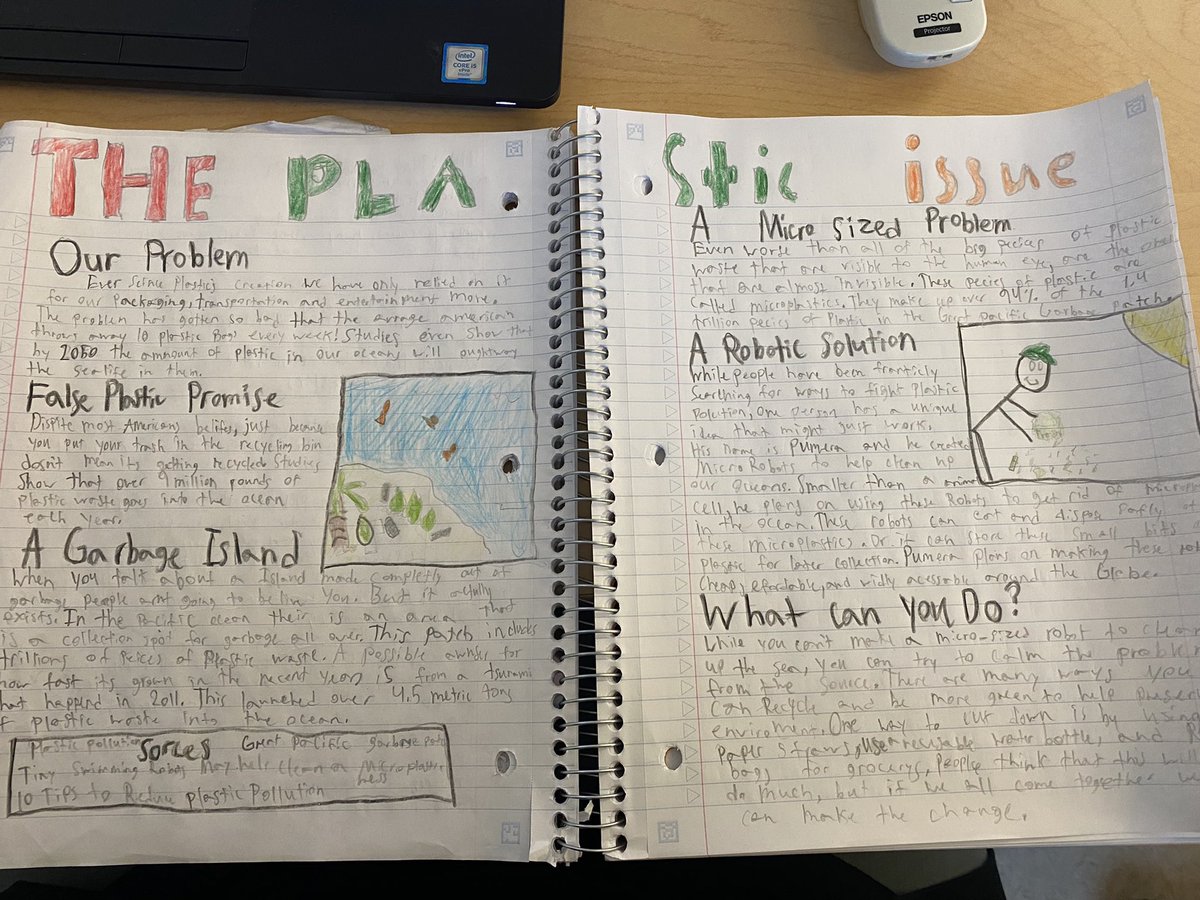 intel
CORE i5
vPro
inside
EPSON
Projector
THE PLA
Stic issue
Our Problem
Ever Science Plastic's creation We have only relied on it
for our packaging, transportation and entertainment more.
The problem has gotten so bad that the avrage american
throws away 10 plastic Bags every week! Studies even show that
by 2050 the ammount of plastic in our oceans will oughtway
the sealife in them.
False Plastic Promise
Dispite most Americans belifes, just because
you put your trash in the recycling bin
doesn't mean its getting recycled. Studies
Show that over million pounds of
plastic waste goes into the ocean
each year.
A Garbage Island
When you talk about a Island made completly out of
garbage, people arnt going to belive you. But it actully
exists. In the Pacific ocean their is an area that
is a collection spot for garbage all over. This patch includes
trillions of peices of plastic waste. A possible awnser for
how fast its grown in the recent years is from a tsunami
that happend in 2011. This launched over 4.5 metric tons
of plastic waste into the ocean.
Sorces
Plastic pollution Great pacific garbage patc
Tiny Swimming Robos May help clean a Microplastic
Mess
10 Tips to Reduce plastic Pollution
A Micro Sized Problem
Even worse than all of the big pecies of plastic
waste that are visible to the human eye, are the ones
that are almost invisible. These pecies of plastic are
called microplastics. They make up over 94% of the 1.4
trillion pecies of Plastic in the Great pacific Garbage
patche
A Robotic Solution
While people have been franticly
Searching for ways to fight plastic
polution, one person has a unique
idea that might just work.
His name is Pumera and he created
Micro Robots to help clean up
our queans. Smaller than a
cell, he plans on using these Robots to get rid of
in the ocean. These robots can eat and dispose safly of
these microplastics. Or it can store these small bits of
plastic for later collection. Pumera plans on making these
cheap, efordable, and widly acessable around the Globe.
What can you Do?
While you can't make a micro-sized robot to clean
up the sea, you can try to calm the problem
from the source. There are many ways you
can Recycle and be more green to help
enviroment. One way to cut down is by using
paper straws, use reuseable water bottle, and
bags for grocerys. People think that this will
do much, but if we all come together we
can make the change.